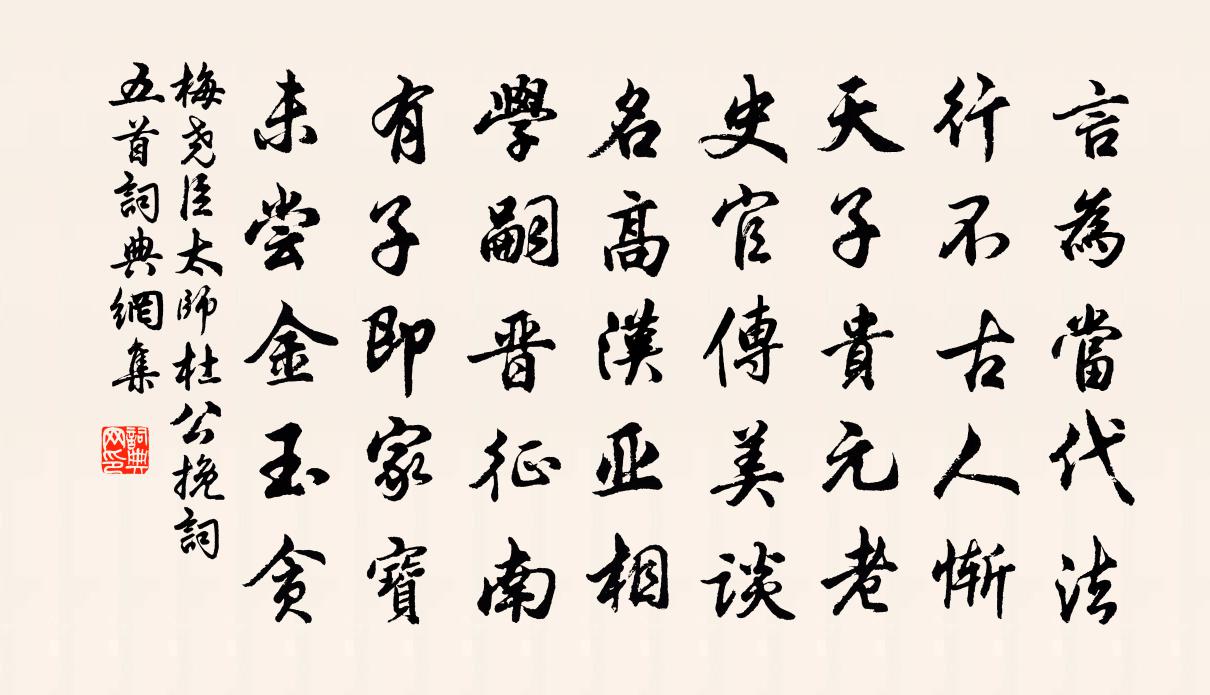 言為當代法
行不古人慚
天子貴元老
史官傳美談
名高漢亚相
學嗣晋征南
有子即家寶
未尝金玉贪
梅尧臣太師杜公挽詞
五首詞典網集
詞典
网印